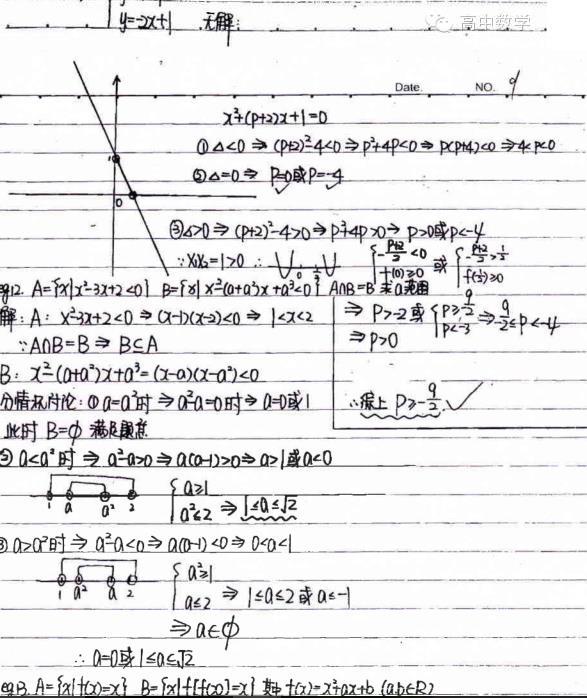 y=-2x+1 无解;
高中数学
Date. NO. 9
x²+(p+2)x+1=0
①Δ<0⇒(p+2)²-4<0⇒p²+4p<0⇒p(p+4)<0⇒-4<p<0
②Δ=0⇒ p=0或p=-4
1
0
③Δ>0⇒(p+2)²-4>0⇒p²+4p>0⇒p>0或p<-4
∵x₁x₂=1>0 ∴ 0 1/2 { -(p+2)/2<0 f(0)≥0 或 { -(p+2)/2>1/2 f(1/2)≥0
⇒ p>-2或 { p≥-9/2 p<-3 ⇒ -9/2≤p<-4
⇒p>0
∴综上 p≥-9/2 ✓
eg12. A={x|x²-3x+2<0} B={x|x²-(a+a²)x+a³<0} A∩B=B 求a范围
解:A: x²-3x+2<0⇒(x-1)(x-2)<0⇒1<x<2
∵A∩B=B⇒B⊆A
B: x²-(a+a²)x+a³=(x-a)(x-a²)<0
分情况讨论:①a=a²时⇒a²-a=0时⇒a=0或1
此时 B=∅ 满足题意
②a<a²时⇒a²-a>0⇒a(a-1)>0⇒a>1或a<0
1 a a² 2 { a≥1 a²≤2 ⇒ 1≤a≤√2
③a>a²时⇒a²-a<0⇒a(a-1)<0⇒0<a<1
1 a² a 2 { a²≥1 a≤2 ⇒ 1≤a≤2或a≤-1
⇒a∈∅
∴a=0或1≤a≤√2
eg13. A={x|f(x)=x} B={x|f[f(x)]=x} 其中f(x)=x²+ax+b (a,b∈R)